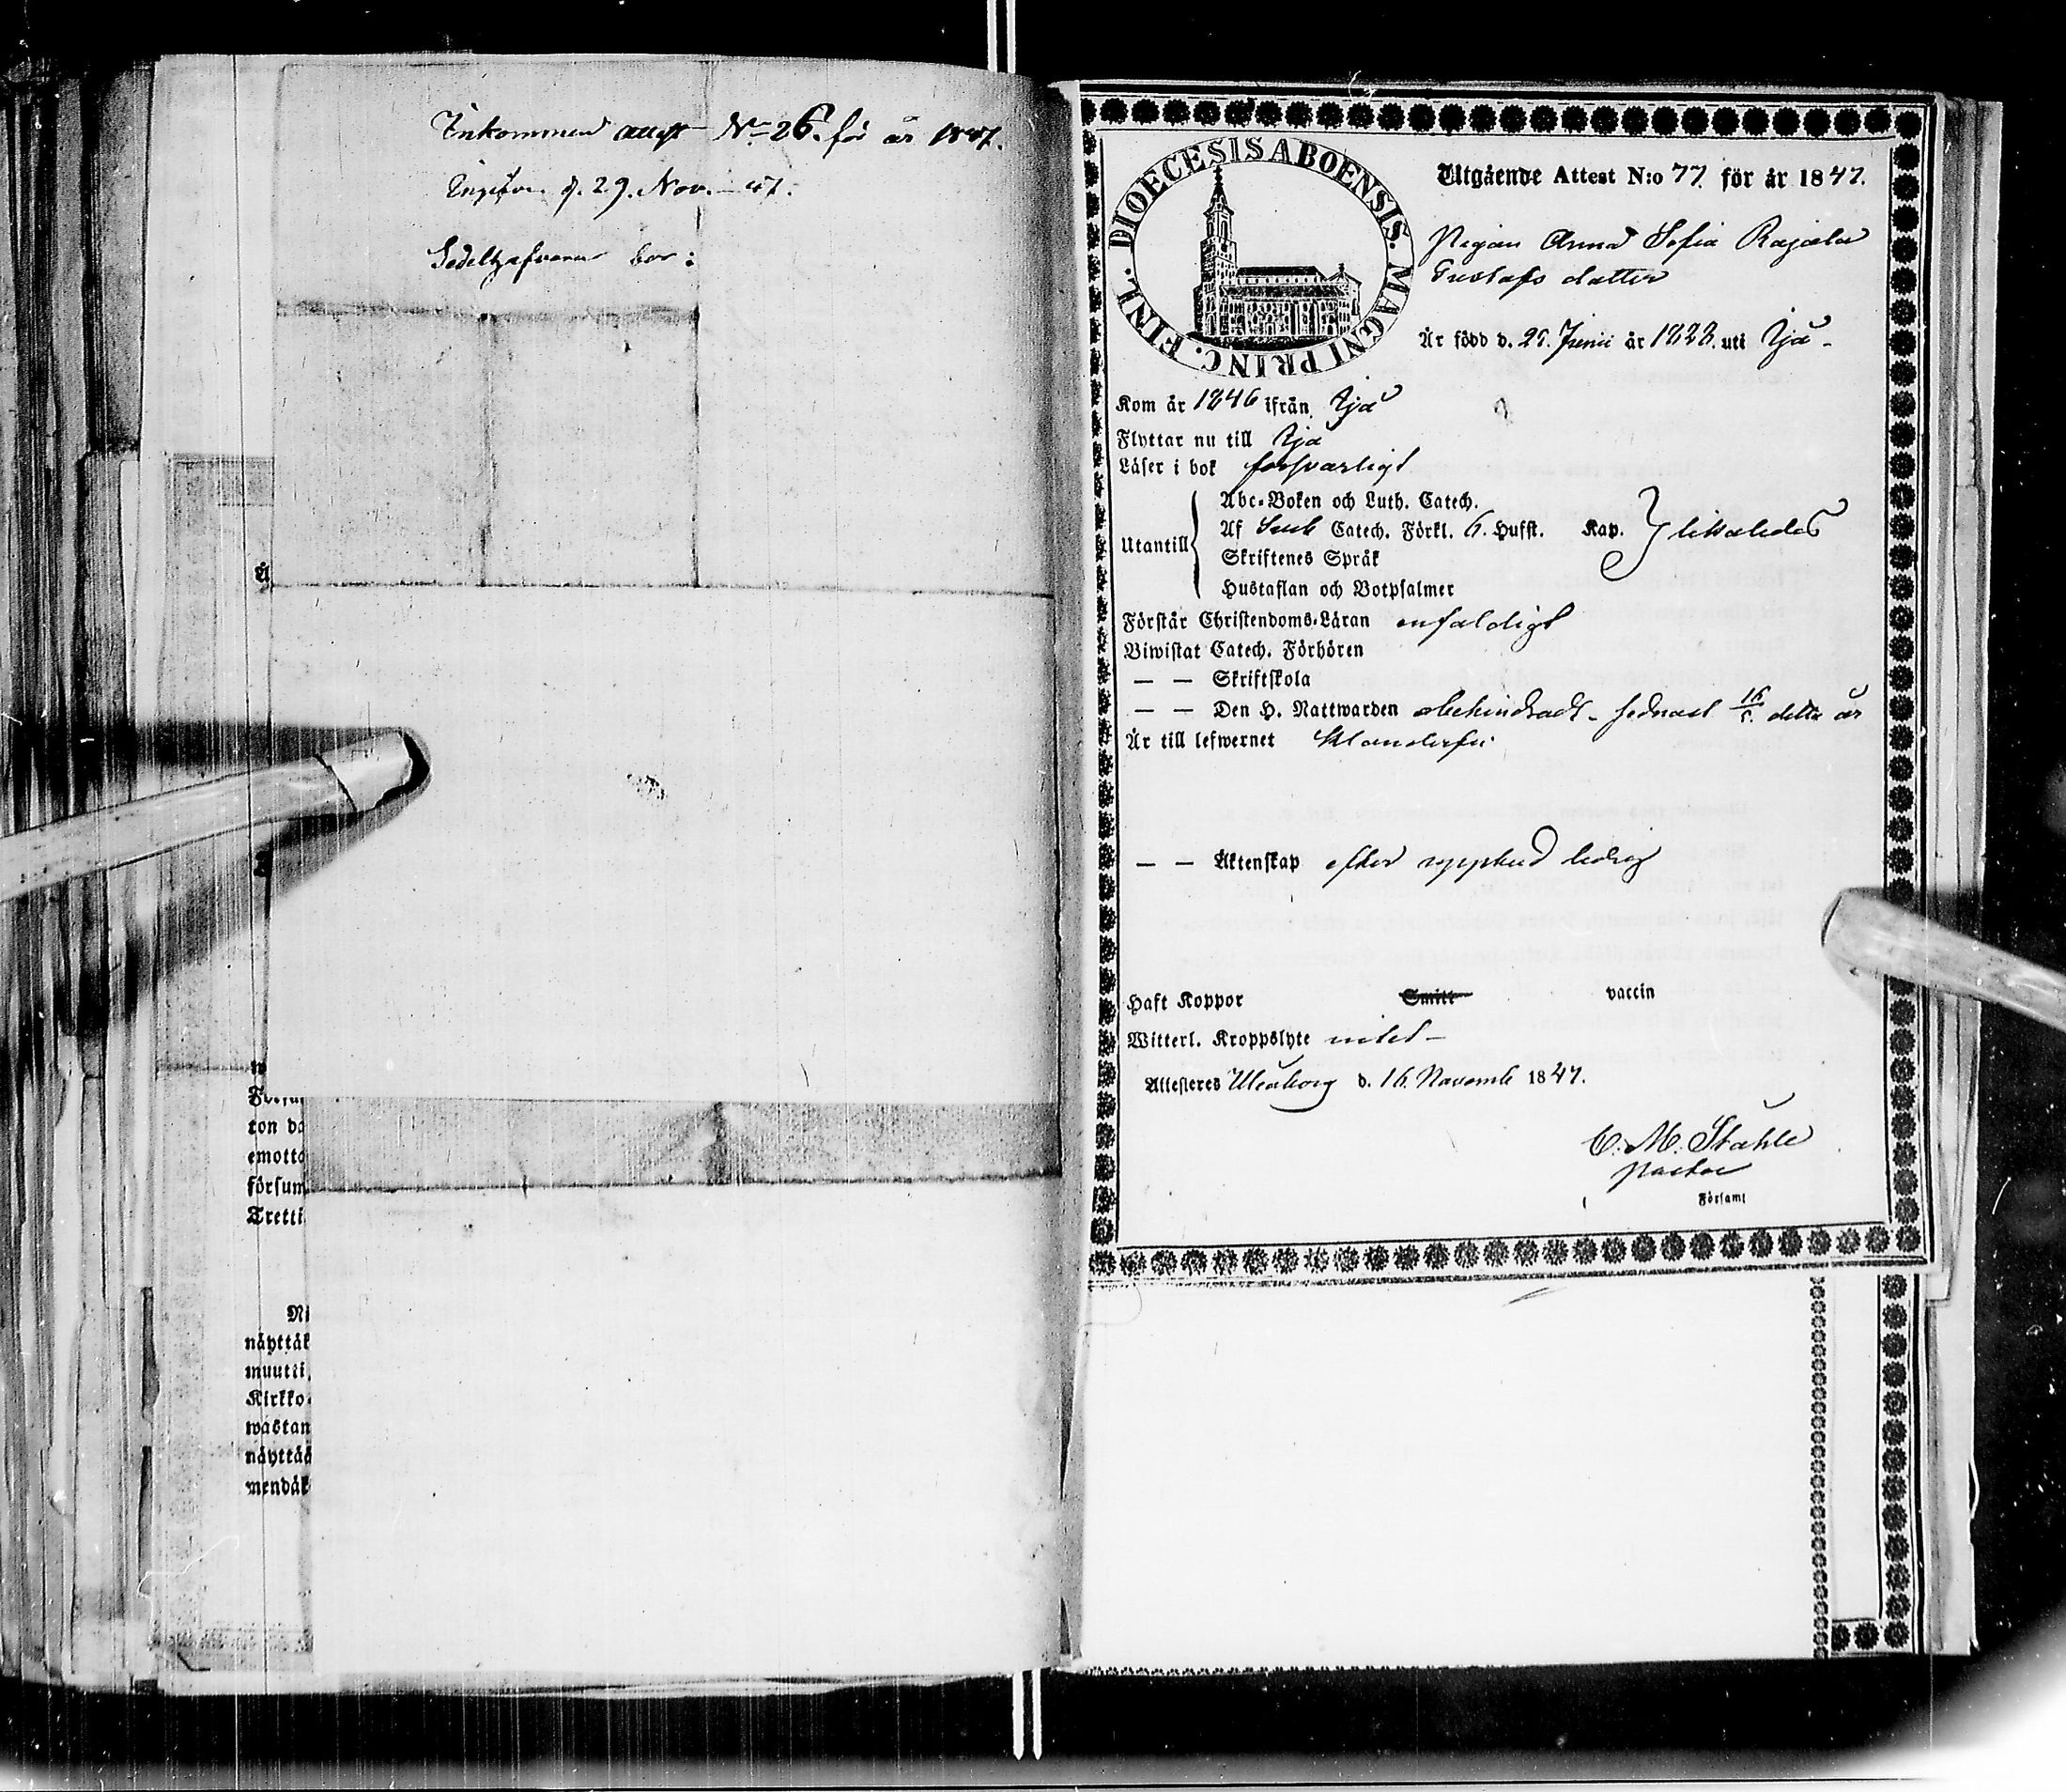 Inkommen attest No 26. för år 1847.
Ingifven d. 29. Nov. - 47.
Sedelhafvaren bor:
ton da
emotta
försum
Tretti
Ni
näyttäk
muutti,
Kirkko-
wastan
näyttää
mendäk
DIOECESIS ABOENSIS. MAGNI PRINC. FINL.
Utgående Attest N:o 77. för år 1847.
Pigan Anna Sofia Rajala
Gustafs dotter
Är född d. 25. Junii år 1828. uti Ijå -
Kom år 1846 ifrån Ijå
Flyttar nu till Ijå
Läser i bok försvarligt
Utantill
Abc-Boken och Luth. Catech.
Af Catech. Förkl. 6. Hufst. Kap. likaledes
Skriftenes Språk
Hustaflan och Botpsalmer
Förstår Christendoms-Läran enfaldigt
Biwistat Catech. Förhören
— — Skriftskola
— — Den H. Nattwarden obehindradt - sednast 16/5. detta år
Är till lefwernet klanderfri
— — Äktenskap efter uppbud ledig
Haft Koppor Smitt vaccin
Witterl. Kroppslyte intet -
Attesteres Uleåborg d. 16. Novemb 1847.
C. M. Ståhle
Pastor
Församl